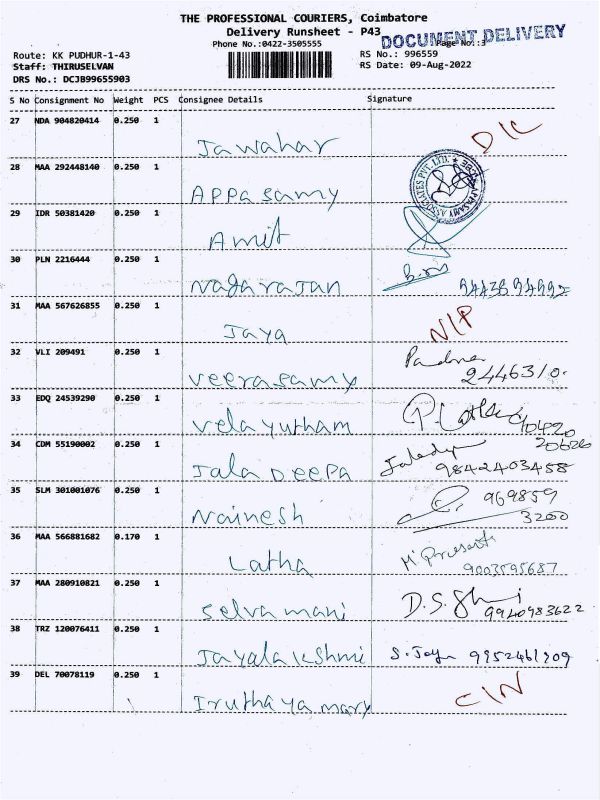 THE PROFESSIONAL COURIERS, Coimbatore
Delivery Runsheet - P43
DOCUMENT DELIVERY
Phone No.:0422-3505555 Page No.:3
Route: KK PUDHUR-1-43 RS No.: 996559
Staff: THIRUSELVAN RS Date: 09-Aug-2022
DRS No.: DCJB99655903
S No Consignment No Weight PCS Consignee Details Signature
27 NDA 904820414 0.250 1
Jawahar D/C
28 MAA 292448140 0.250 1
Appasamy
29 IDR 50381420 0.250 1
Amit
30 PLN 2216444 0.250 1
Nagarajan
31 MAA 567626855 0.250 1
Jaya N/P
32 VLI 209491 0.250 1
Veerasamy Padma 2446310.
33 EDQ 24539290 0.250 1
Velayutham
34 CDM 55190002 0.250 1
Jala Deepa 9842403458
35 SLM 301001076 0.250 1
Nainesh 969859
3200
36 MAA 566881682 0.170 1
Latha 9003595687
37 MAA 280910821 0.250 1
Selvamani 9940983622
38 TRZ 120076411 0.250 1
Jayalakshmi S. Jaya
39 DEL 70078119 0.250 1
Iruthayamary C/N